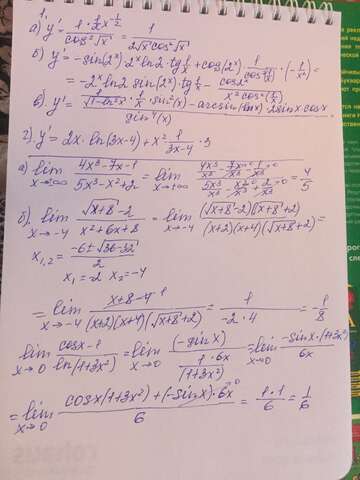 1.
а) y' = 1·½x^(-½) / cos²√x = 1 / 2√x cos²√x
б) y' = -sin(2^x) 2^x ln2 · tg 1/x + cos(2^x) · 1/cos²(1/x) · (-1/x²) =
= -2^x ln2 sin(2^x) tg 1/x - cos2^x / x² cos²(1/x)
в) y' = 1/√(1-ln²x) · 1/x · sin²(x) - arcsin(lnx) · 2sinx cosx / sin⁴(x)
г) y' = 2x · ln(3x-4) + x² · 1/(3x-4) · 3
а) lim x→∞ (4x³-7x-1)/(5x³-x²+2) = lim x→∞ (4x³/x³ - 7x/x³ - 1/x³)/(5x³/x³ - x²/x³ + 2/x³) = 4/5
б) lim x→-4 (√(x+8)-2)/(x²+6x+8) = lim x→-4 (√(x+8)-2)(√(x+8)+2)/(x+2)(x+4)(√(x+8)+2) =
x₁,₂ = (-6±√(36-32))/2
x₁ = -2 x₂ = -4
= lim x→-4 (x+8-4)/(x+2)(x+4)(√(x+8)+2) = 1/(-2·4) = -1/8
lim x→0 (cosx-1)/ln(1+3x²) = lim x→0 (-sinx)/(1·6x/(1+3x²)) = lim x→0 -sinx·(1+3x²)/6x
= lim x→0 (cosx(1+3x²)+(-sinx)·6x)/6 = 1·1/6 = 1/6
rohaus